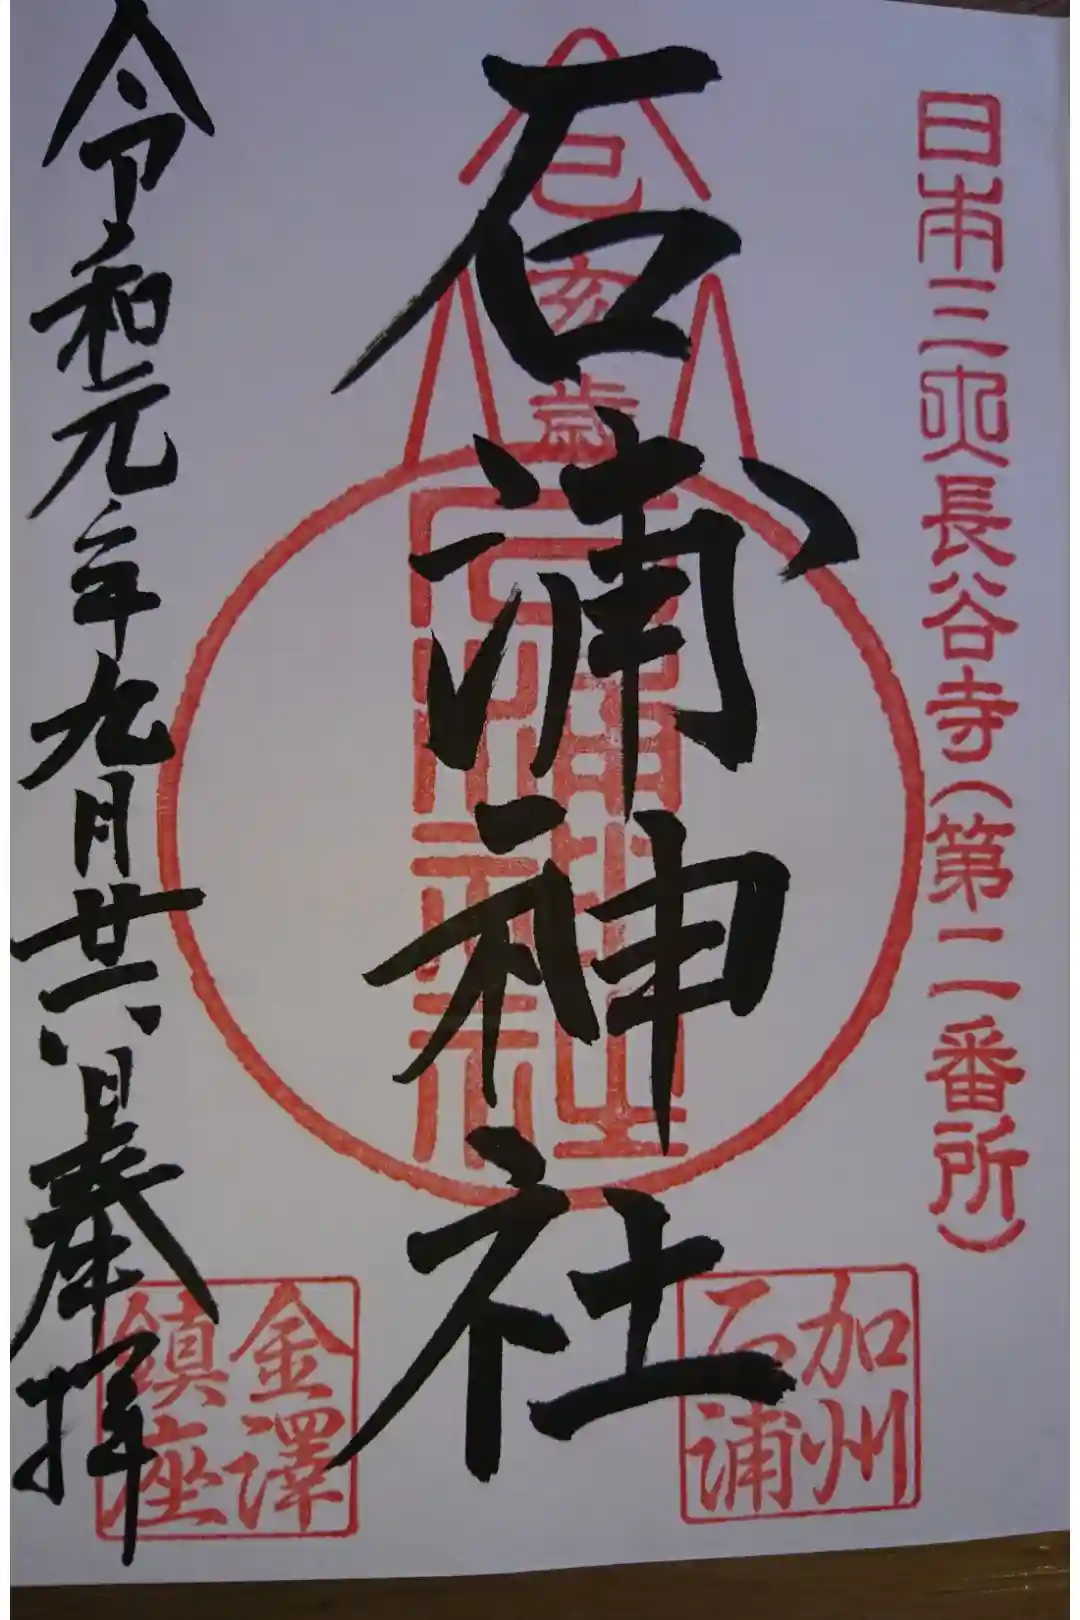 日本三大長谷寺(第二番所)
加州
石浦
己亥歳
石浦神社
石浦神社
令和元年九月廿六日奉拝
金澤
鎮座